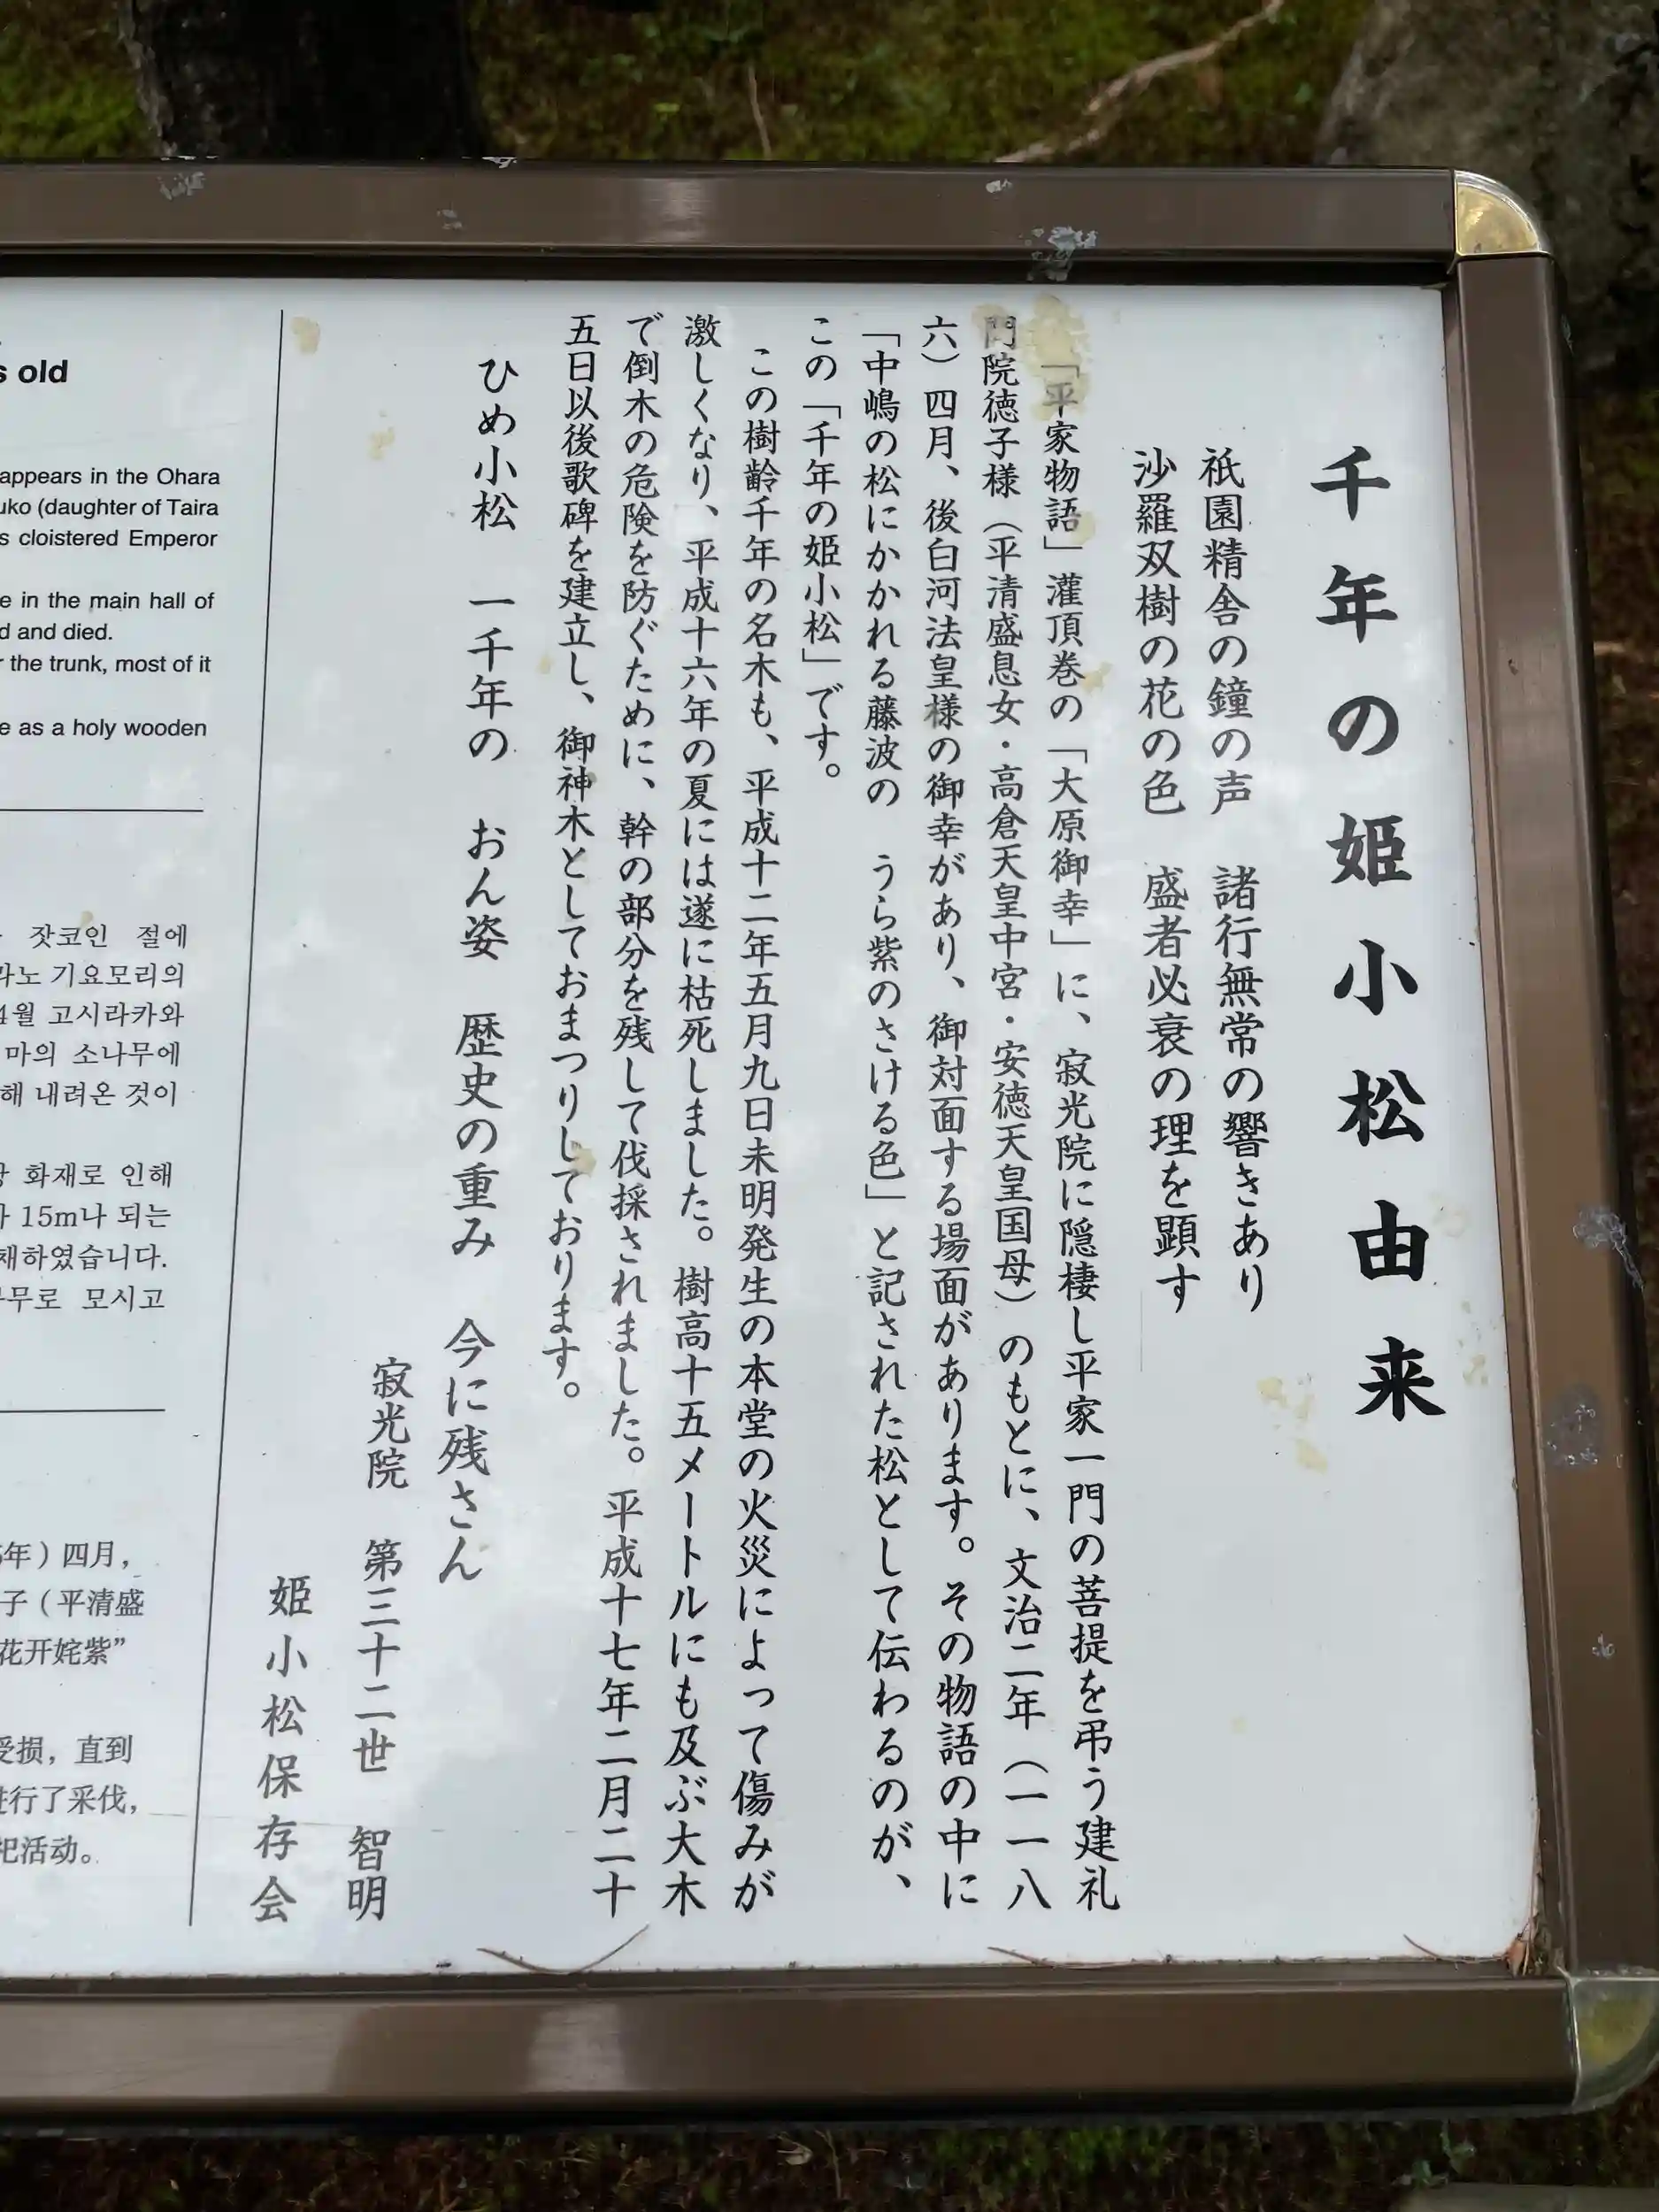 千年の姫小松由来
祇園精舎の鐘の声　諸行無常の響きあり
沙羅双樹の花の色　盛者必衰の理を顕す
「平家物語」灌頂巻の「大原御幸」に、寂光院に隠棲し平家一門の菩提を弔う建礼
門院徳子様（平清盛息女・高倉天皇中宮・安徳天皇国母）のもとに、文治二年（一一八
六）四月、後白河法皇様の御幸があり、御対面する場面があります。その物語の中に
「中嶋の松にかかれる藤波の　うら紫のさける色」と記された松として伝わるのが、
この「千年の姫小松」です。
この樹齢千年の名木も、平成十二年五月九日未明発生の本堂の火災によって傷みが
激しくなり、平成十六年の夏には遂に枯死しました。樹高十五メートルにも及ぶ大木
で倒木の危険を防ぐために、幹の部分を残して伐採されました。平成十七年二月二十
五日以後歌碑を建立し、御神木としておまつりしております。
ひめ小松　一千年の　おん姿　歴史の重み　今に残さん
寂光院　第三十二世　智明
姫小松保存会
s old
appears in the Ohara
uko (daughter of Taira
s cloistered Emperor
e in the main hall of
d and died.
r the trunk, most of it
e as a holy wooden
잣코인 절에
라노 기요모리의
4월 고시라카와
마의 소나무에
해 내려온 것이
화재로 인해
15m나 되는
채하였습니다.
무로 모시고
年）四月，
子（平清盛
花开姹紫”
受损，直到
进行了采伐，
祀活动。